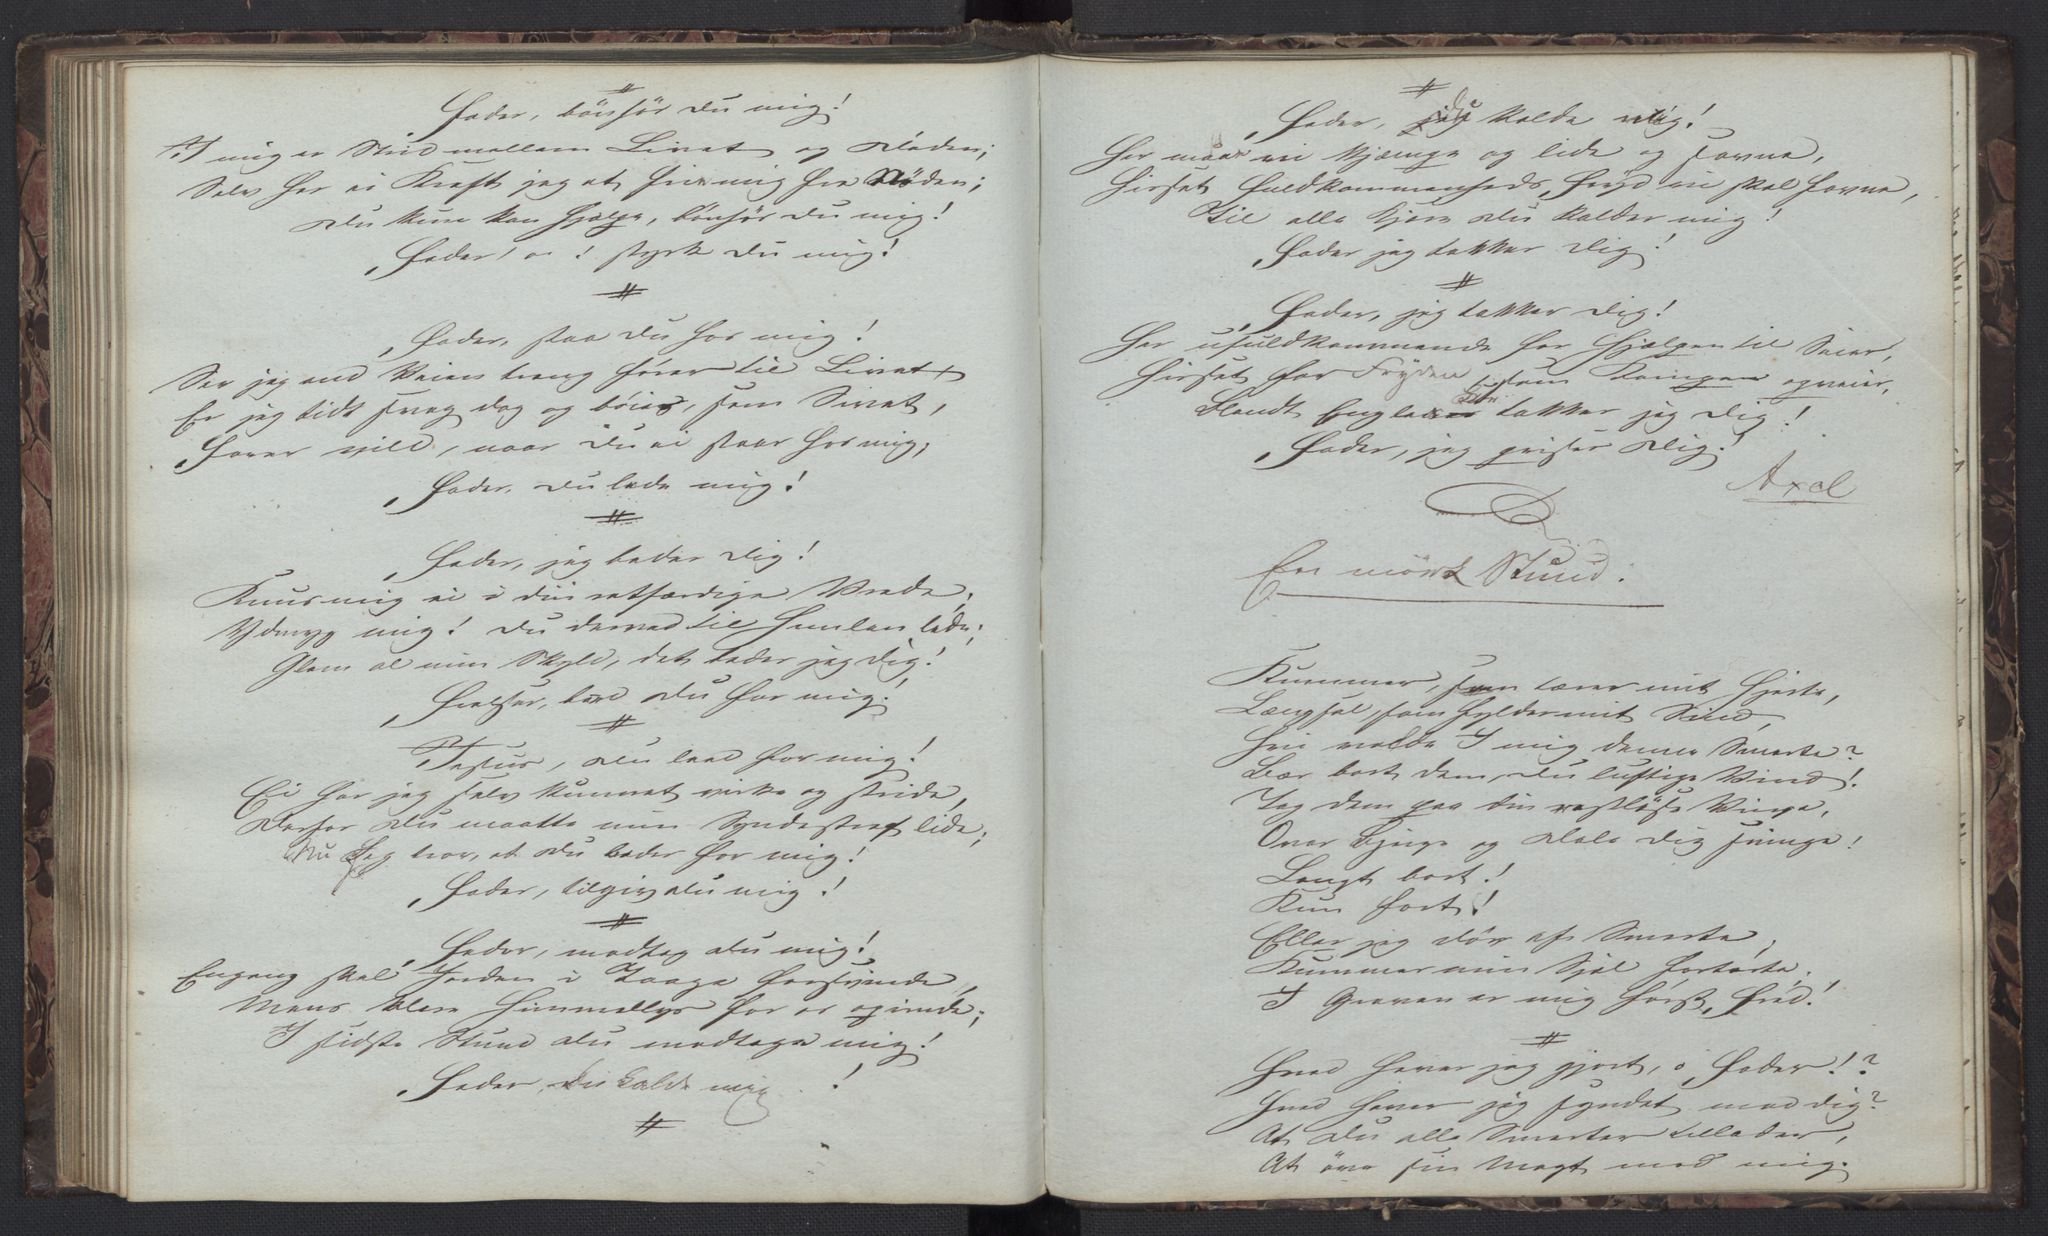 #
Fader, bönhör Du mig!
I mig er Strid mellem Livet og Døden;
Selv har ei Kraft jeg at frie mig fra Nöden;
Du kun kan hjælpe, bönhör Du mig!
Fader! o! styrk Du mig!
#
Fader, staa Du hos mig!
Ser jeg end Veien trang fører til Livet
Er jeg tidt svag dog og böies, som Sivet,
Farer vild, naar Du ei staar hos mig,
Fader, Du lede mig!
#
Fader, jeg beder Dig!
Knus mig ei i din retfærdige Vrede,
Ydmyg mig! Du derved til Himlen lede;
Glem al min Skyld, det beder jeg Dig!
Frelser, bed Du for mig!
#
Jesus, Du leed for mig!
Ei har jeg selv kunnet virke og stride,
Derfor Du maatte min Syndestraf lide;
Nu jeg tror, at Du beder for mig!
Fader, tilgiv Du mig!
#
Fader, modtag Du mig!
Engang skal Jorden i Taage forsvinde,
Mens klare Himmellys for os oprinde;
I sidste Stund Du modtage mig!
Fader, Du kalde mig!
#
#
Fader, Du kalde mig!
Her maa vi kjæmpe og lide og savne,
Hisset Fuldkommenheds Fryd vi skal favne,
Til alle kjære Du kalder mig!
Fader jeg takker Dig!
#
Fader, jeg takker Dig!
Her ufuldkommende for Hjælpen til Seier,
Hisset for Fryden som Kampen opveier,
Blandt Englene takker jeg Dig!
Fader, jeg priser Dig!
Axel
En mörk Stund.
Kummer, som tærer mit Hjerte,
Længsel, som fylder mit Sind,
Hvi volde I mig denne Smerte?
Bær bort dem, Du luftige Vind!
Tag dem paa din rastløse Vinge,
Over Bjerge og Dale Dig svinge!
Langt bort!
Kun fort!
Eller jeg dör af Smerte,
Kummer min Sjæl fortærte,
I Graven er mig først, Fred!
#
Hvad haver jeg gjort, o Fader!?
Hvad haver jeg syndet mod dig?
At Du alle Smerter tillader,
At öve sin Magt mod mig.